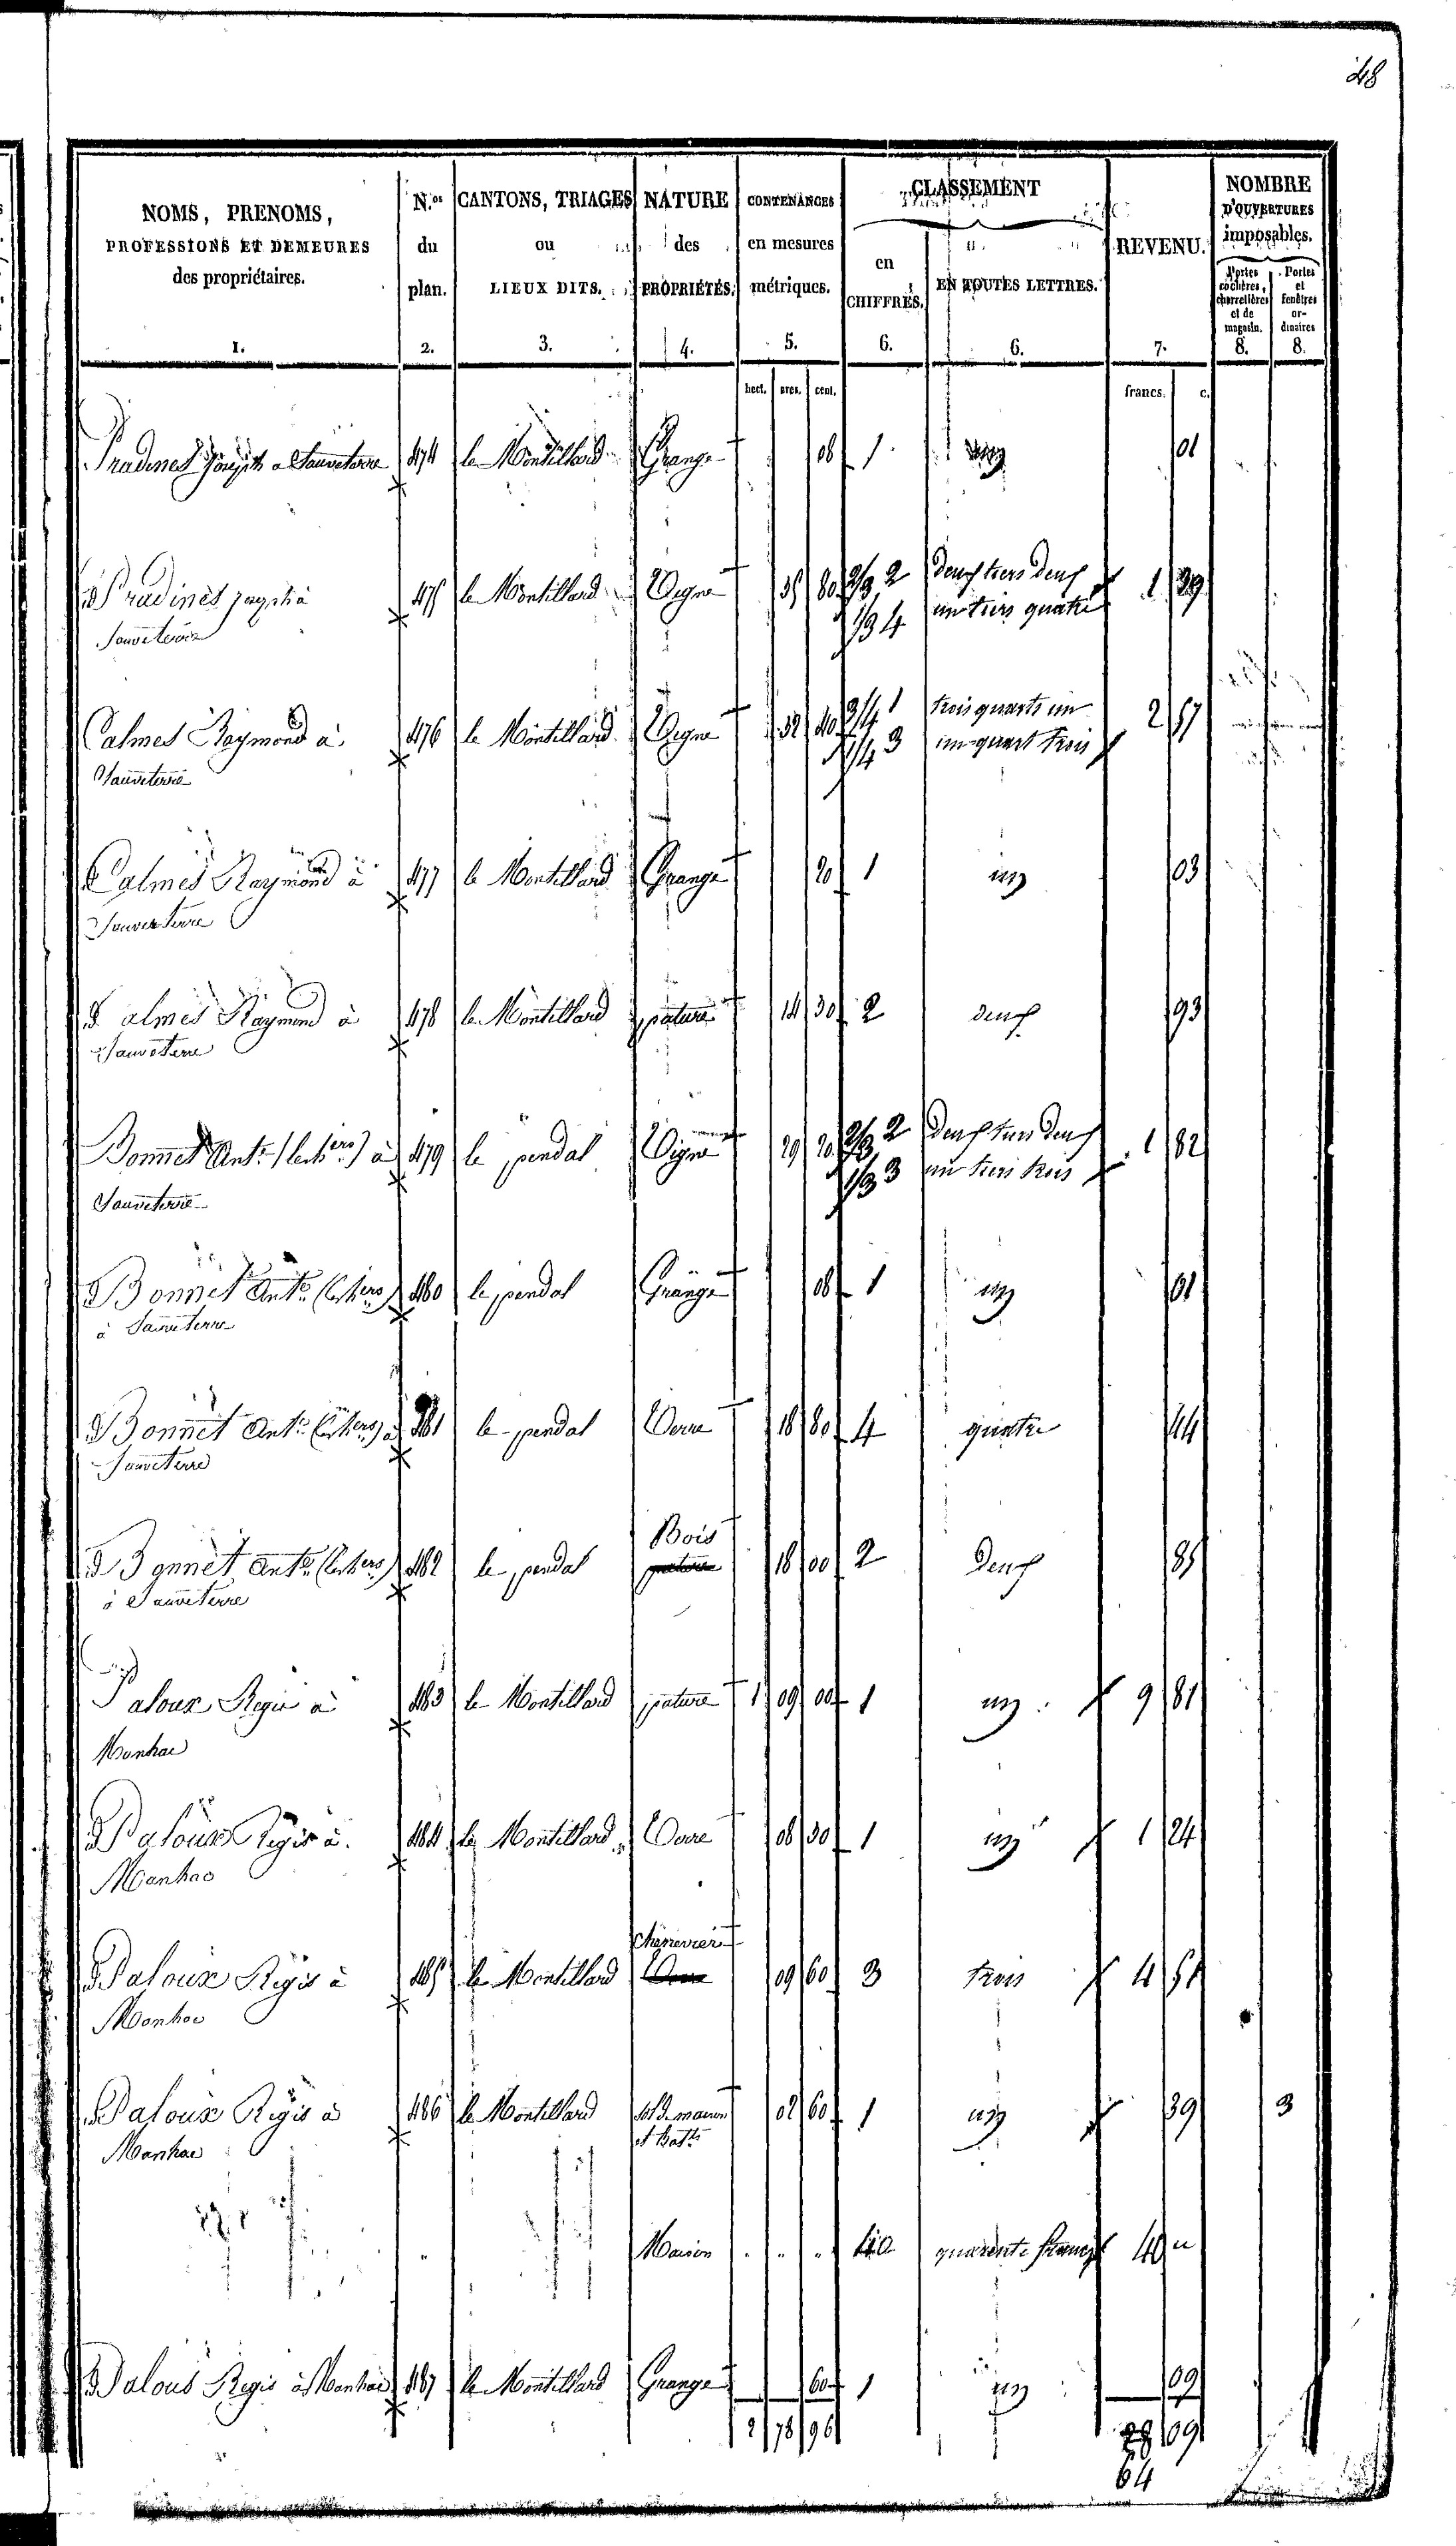 48
NOMS, PRENOMS,
PROFESSIONS ET DEMEURES
des propriétaires.
1.
N.os
du
plan.
2.
CANTONS, TRIAGES
ou
LIEUX DITS.
3.
NATURE
des
PROPRIÉTÉS.
4.
CONTENANCES
en mesures
métriques.
5.
CLASSEMENT
en
CHIFFRES.
6.
EN TOUTES LETTRES.
6.
REVENU.
7.
NOMBRE
D'OUVERTURES
imposables.
Portes cochères, charretières et de magasin.
8.
Portes et fenêtres ordinaires
8.
hect. ares. cent. francs. c.
Pradines Joseph a Sauveterre 474 le Montillard Grange 08 1 un 01
Pradines Joseph à 475 le Montillard Vigne 35 80 2/3 2 deux tiers deux 1 39
Sauveterre 1/3 4 un tiers quatre
Calmes Raymond à 476 le Montillard Vigne 32 40 3/4 1 trois quarts un 2 57
Sauveterre 1/4 3 un quart trois
Calmes Raymond à 477 le Montillard Grange 20 1 un 03
Sauveterre
Calmes Raymond à 478 le Montillard pature 14 30 2 deux 93
Sauveterre
Bonnet Ante (les hers) à 479 le pendal Vigne 29 20 2/3 2 deux tiers deux 1 82
Sauveterre 1/3 3 un tiers trois
Bonnet Ante (les hers) 480 le pendal Grange 08 1 un 01
à Sauveterre
Bonnet Ante (les hers) à 481 le pendal 18 80 4 quatre 44
Sauveterre
Bois
Bonnet Ante (les hers) 482 le pendal pature 18 00 2 Deux 85
à Sauveterre
Paloux Regis à 483 le Montillard pature 1 09 00 1 un 9 81
Manhac
Paloux Regis à 484 le Montillard 08 30 1 un 1 24
Manhac
chenevier
Paloux Regis à 485 le Montillard 09 60 3 trois 4 51
Manhac
Paloux Regis à 486 le Montillard sol de maison 02 60 1 un 39 3
Manhac et batts
" Maison " " " 40 quarante francs 40 "
Paloux Regis à Manhac 487 le Montillard Grange 60 1 un 09
2 78 96 09
64